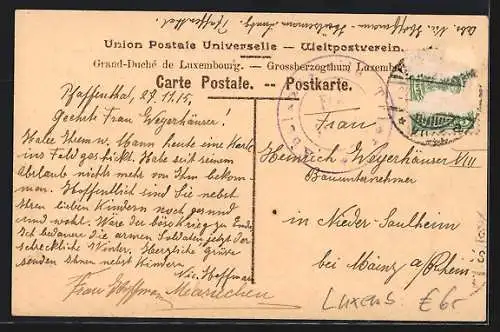 Abs. Nic. Hoffmann - Pfaffenthal.
Union Postale Universelle — Weltpostverein.
Grand-Duché de Luxembourg. — Grossherzogthum Luxemb
Carte Postale. -- Postkarte.
Pfaffenthal, 29.11.15,
Geehrte Frau Weyerhäuser!
Habe Ihrem w. Mann heute eine Karte
ins Feld geschickt. Habe seit seinem
Abrlaub nichts mehr von Ihm bekom-
men. Hoffentlich sind Sie nebst
Ihren lieben Kindern noch gesund
und wohl. Wäre der böse Krieg zu Ende.
Ich bedaure die armen Soldaten jetzt der
schreckliche Winter. Herzliche Grüße
senden Ihnen nebst Kindern
Nic. Hoffman
Frau Hoffman Mariechen
Frau
Heinrich Weyerhäuser VIII
Bauunternehmer
in Nieder-Saulheim
bei Mainz a/Rhein
LUXEMB. £6r